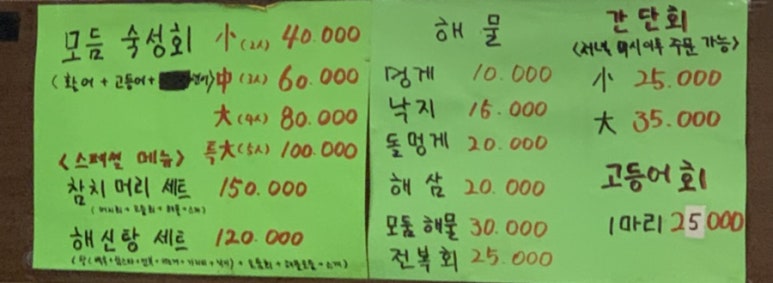 모듬 숙성회 小 (2人) 40.000
(활어 + 고등어 + 中 (3人) 60.000
大 (4人) 80.000
<스페셜 메뉴> 특大 (5人) 100.000
참치 머리 세트 150.000
해신탕 세트 120.000
해 물
멍게 10.000
낙지 15.000
돌멍게 20.000
해삼 20.000
모듬해물 30.000
전복회 25.000
간단회
<저녁 시이후 주문 가능>
小 25.000
大 35.000
고등어회
1마리 25000